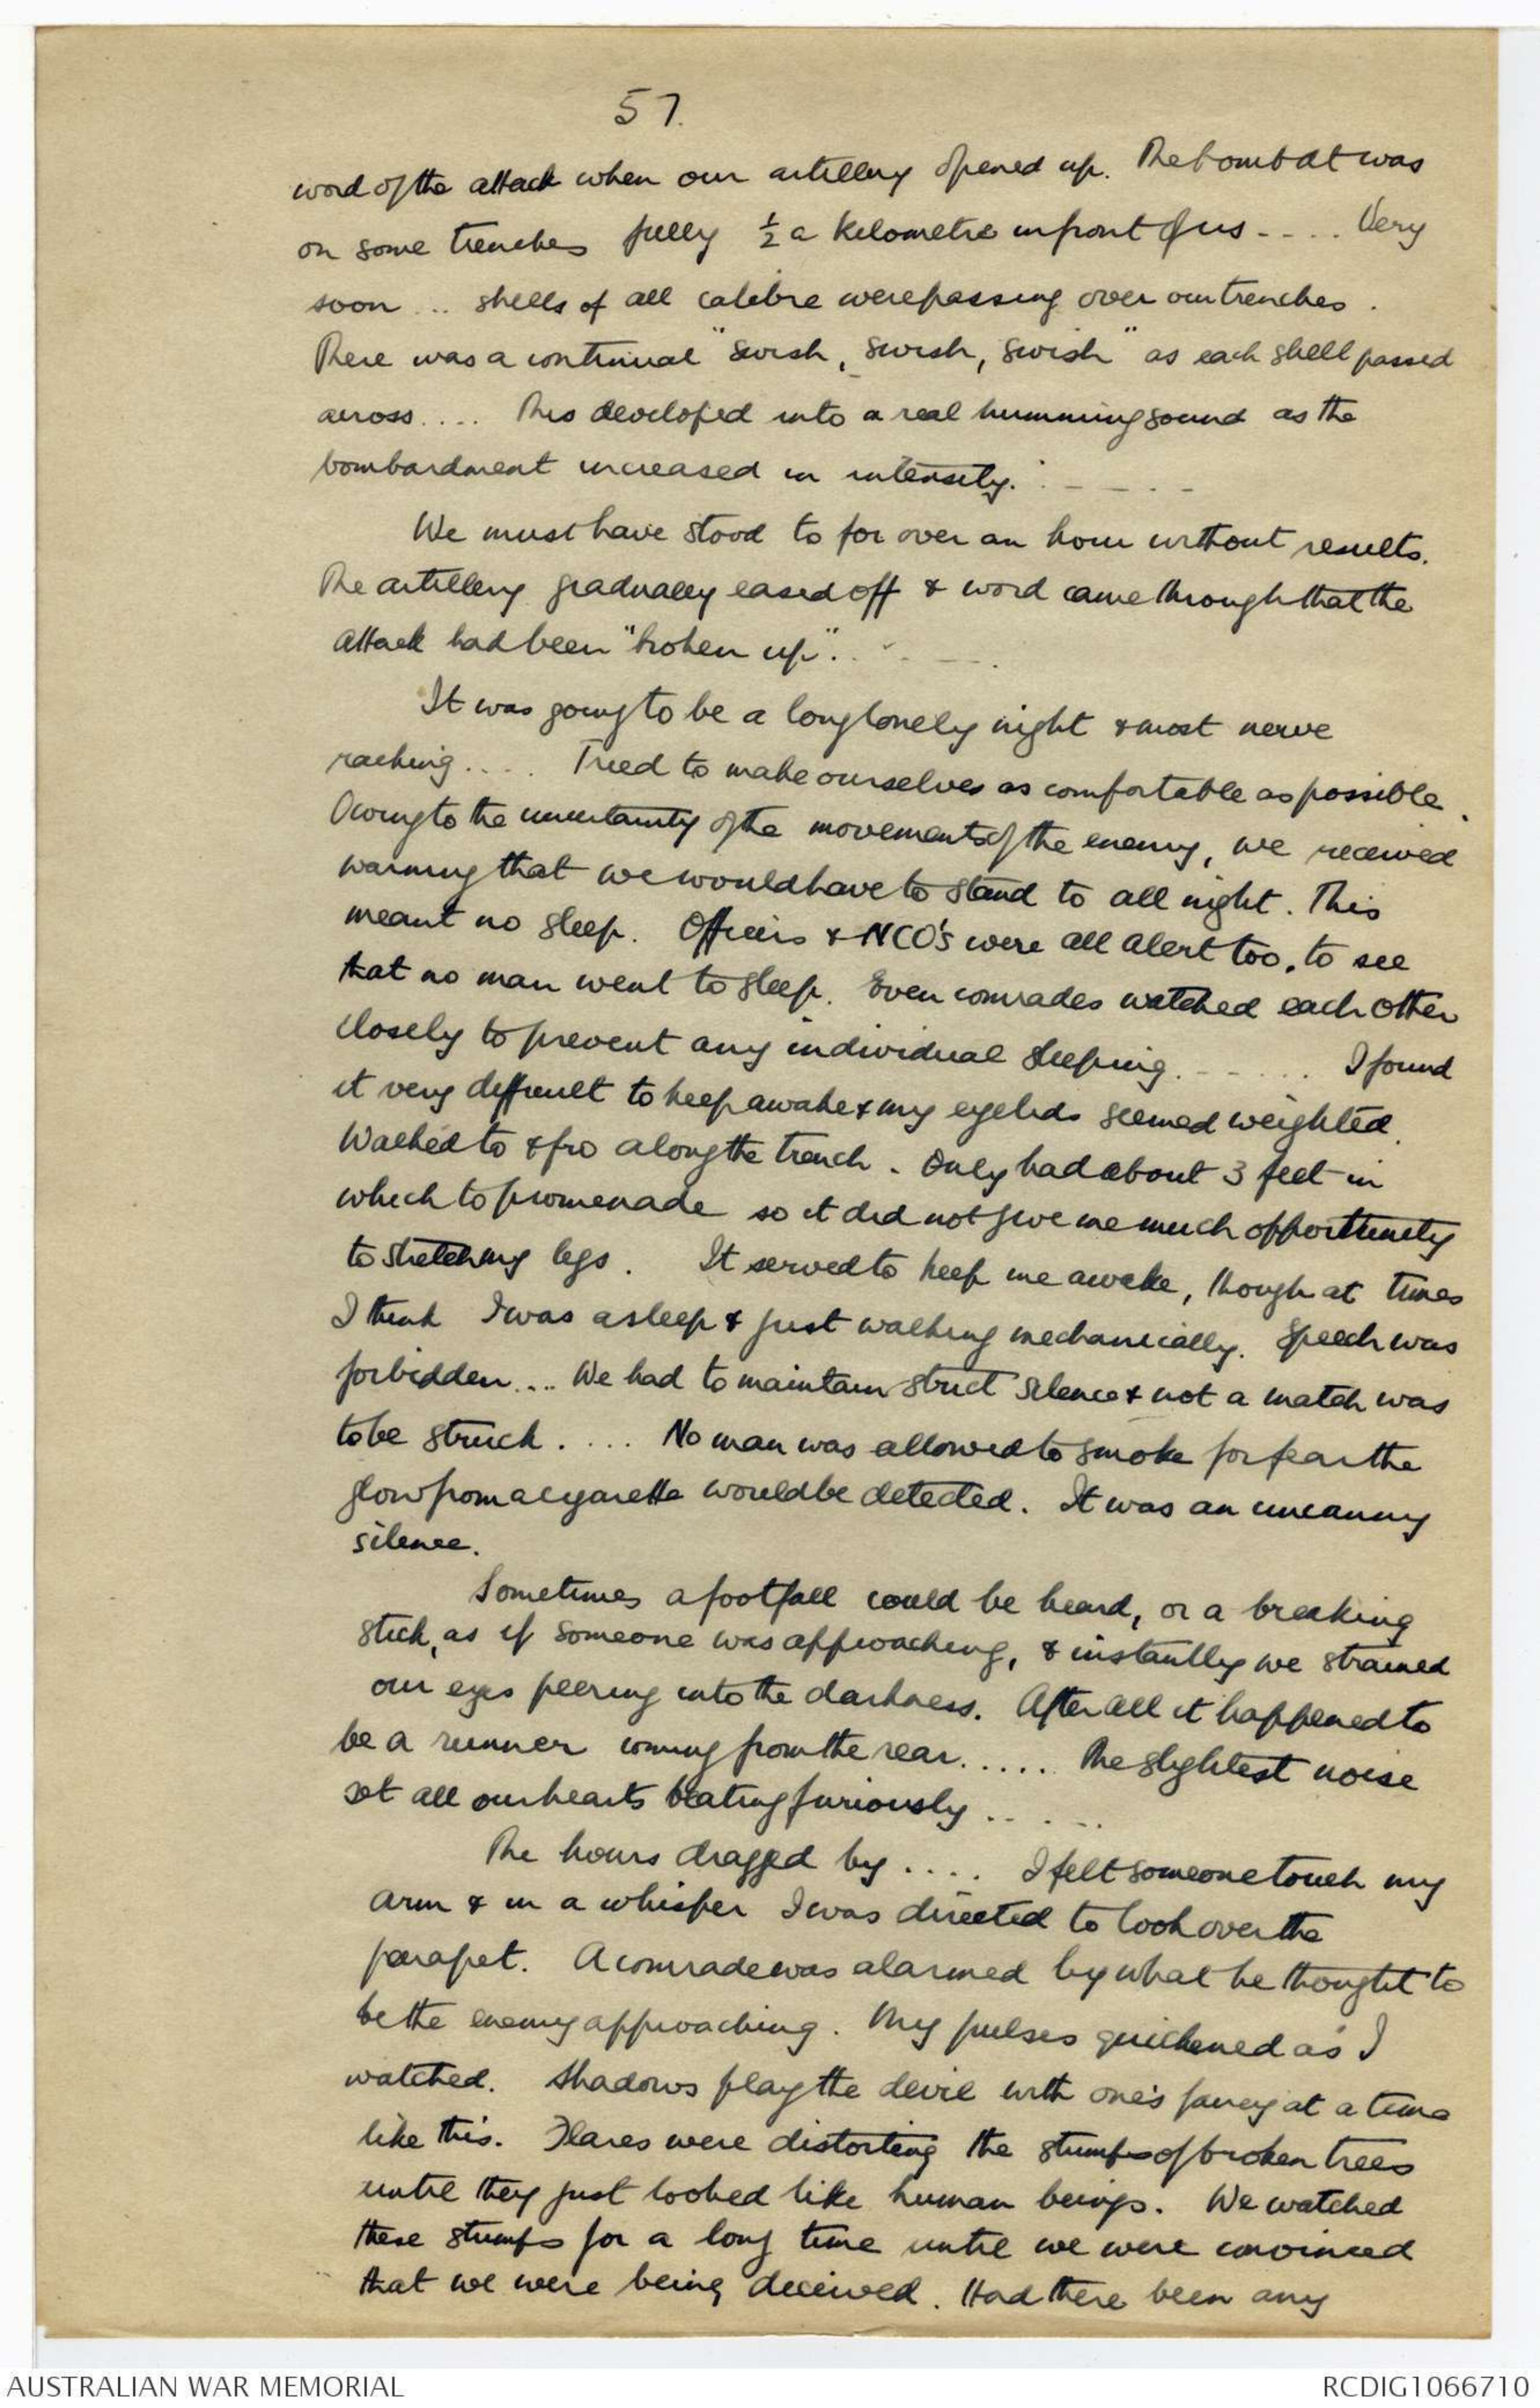 57.
word of the attack when our artillery opened up. The bombdt was
on some trenches fully ½ a kilometre in front of us - . . . Very
soon ... shells of all calibre were passing over our trenches .
There was a continual "swish, swish, swish" as each shell passed
across . . . . This developed into a real humming sound as the
bombardment increased in intensity. . - - . -
We must have stood to for over an hour without results.
The artillery gradually eased off & word came through that the
attack had been "broken up". . - - - .
It was going to be a long lonely night & most nerve
racking . . . . Tried to make ourselves as comfortable as possible .
Owing to the uncertainty of the movements of the enemy, we received
warning that we would have to stand to all night. This
meant no sleep. Officers & NCO's were all alert too, to see
that no man went to sleep. Even comrades watched each other
closely to prevent any individual sleeping. - - . . . I found
it very difficult to keep awake & my eyelids seemed weighted.
Walked to & fro along the trench. Only had about 3 feet in
which to promenade so it did not give me much opporttunity
to stretch my legs . It served to keep me awake, though at times
I think I was asleep & just walking mechanically. Speech was
forbidden .... We had to maintain strict silence & not a match was
to be struck . . . . No man was allowed to smoke for fear the
glow from a cigarette would be detected. It was an uncanny
silence.
Sometimes a footfall could be heard, or a breaking
stick, as if someone was approaching, & instantly we strained
our eyes peering into the darkness. After all it happened to
be a runner coming from the rear . . . . . The slightest noise
set all our hearts beating furiously . . . . .
The hours dragged by . . . . I felt someone touch my
arm & in a whisper I was directed to look over the
parapet. A comrade was alarmed by what he thought to
be the enemy approaching. My pulses quickened as I
watched. Shadows play the devil with one's fancy at a time
like this. Flares were distorting the stumps of broken trees
until they just looked like human beings. We watched
these stumps for a long time until we were convinced
that we were being deceived. Had there been any
AUSTRALIAN WAR MEMORIAL
RCDIG1066710